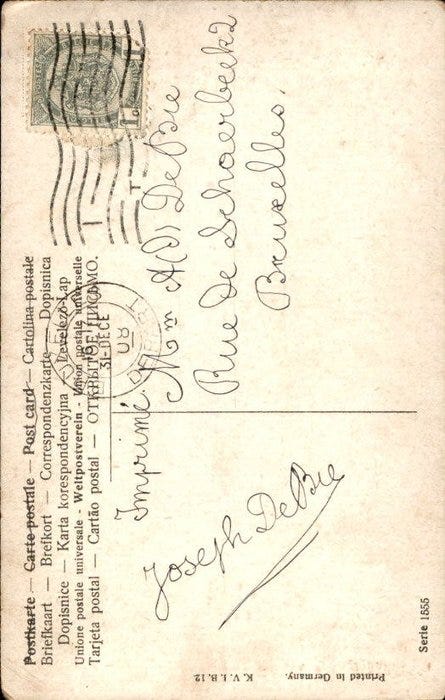 Postkarte — Carte postale — Post card — Cartolina postale
Briefkaart — Brefkort — Correspondenzkarte — Dopisnica
Dopisnice — Karta korespondencyjna — Levelező-Lap
Unione postale universale - Weltpostverein - Union postale universelle
Tarjeta postal — Cartão postal — ОТКРЫТОЕ ПИСЬМО.
31 DECE
08
1c
Imprimé
Mm A(D) DeBie
Rue de Schaerbeek 2
Bruxelles.
Joseph DeBie
K. V. i. B. 12.
Printed in Germany.
Serie 1855